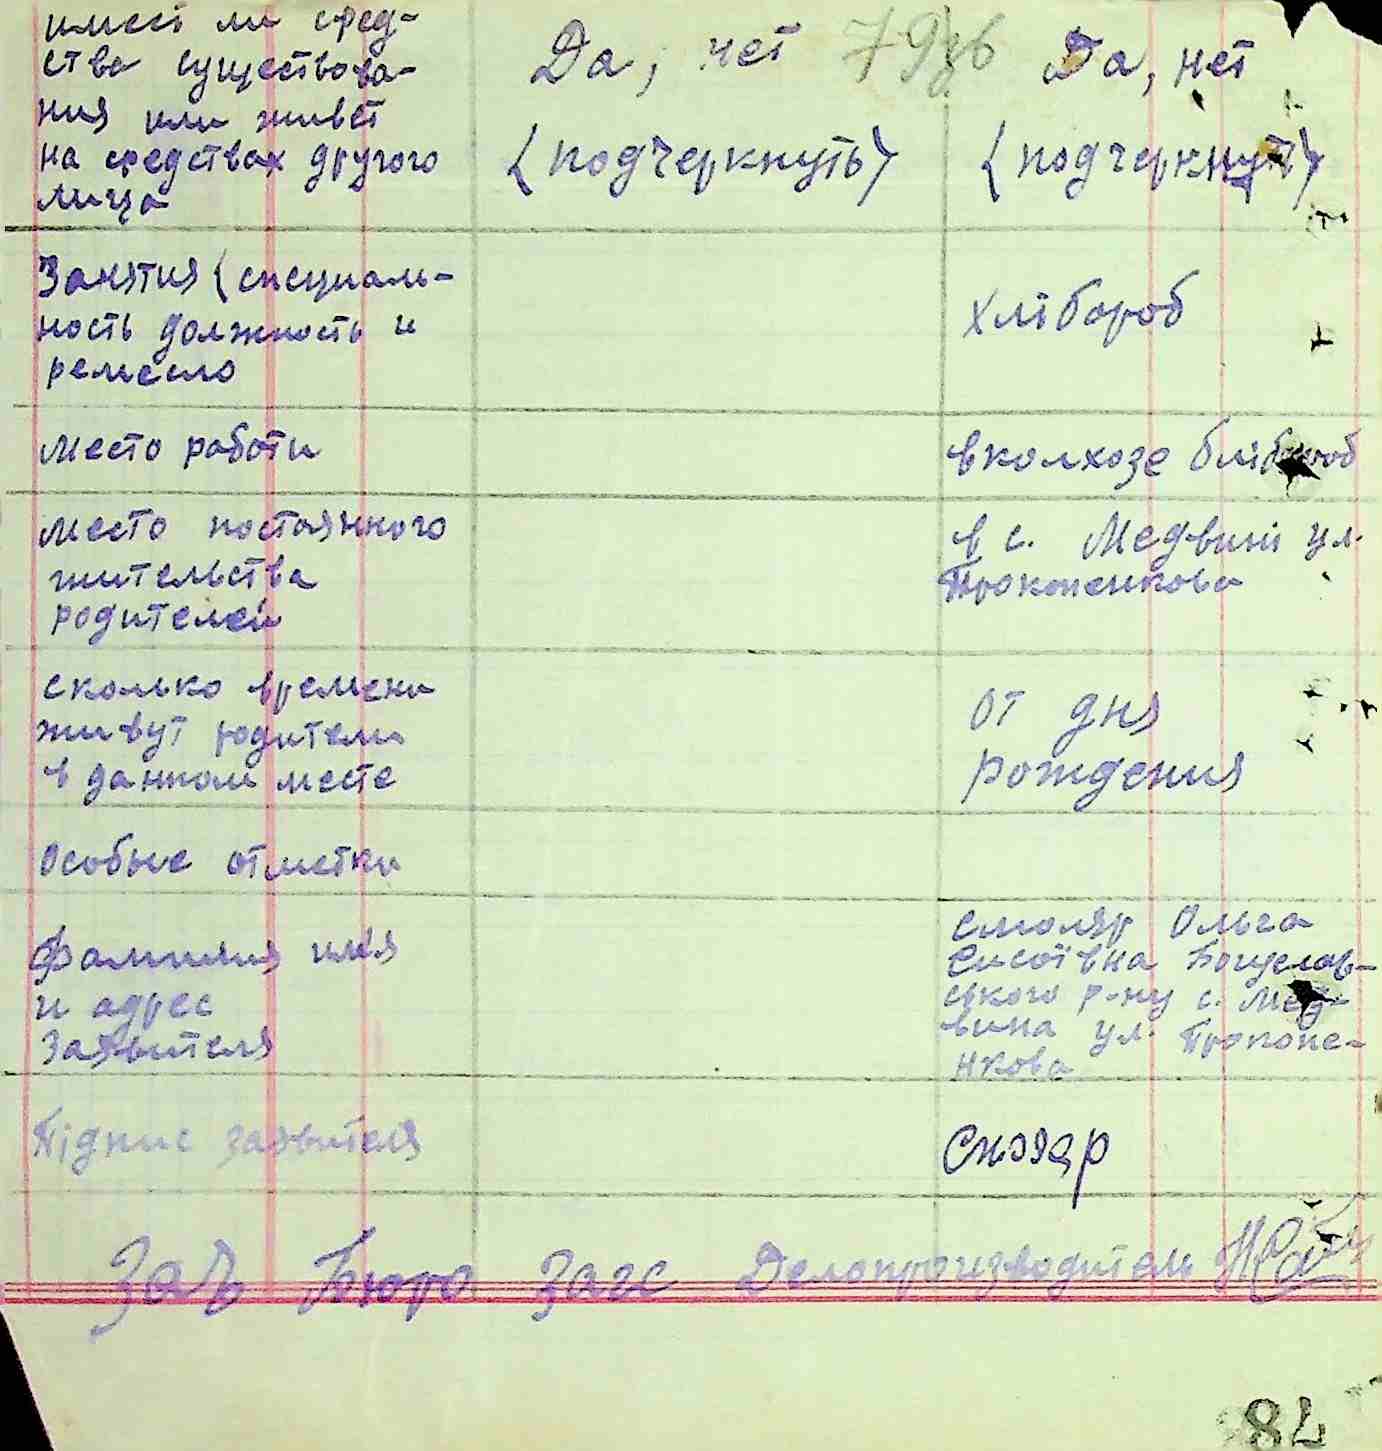 имеет ли сред-
ства существова-
ния или живет
на средствах другого
лица
Да, нет 79зв Да, нет
(подчеркнуть) (подчеркнуть)
Занятия (специаль-
ность должность и
ремесло
хлібороб
Место работи
в колхозе Хлібороб
Место постоянного
жительства
родителей
в с. Медвині ул.
Прокопенкова
сколько времени
живут родители
в данном месте
от дня
рождения
Особые отметки
Фамилия имя
и адрес
Заявителя
Смоляр Ольга
Сисоївна Богуслав-
ського р-ну с. Мед-
вина ул. Прокопе-
нкова
Підпис заявителя
Зав Бюро Загс Делопроизводитель
78